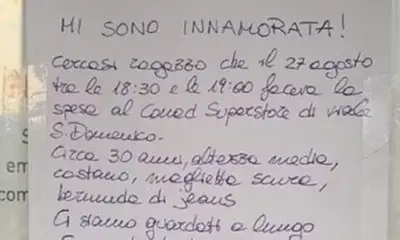 MI SONO INNAMORATA!
Cercasi ragazzo che il 27 agosto
tra le 18:30 e le 19:00 faceva la
spesa al Conad Superstore di viale
S. Domenico.
Circa 30 anni, altezza media,
castano, maglietta scura,
bermuda di jeans
Ci siamo guardati a lungo
S
em
com